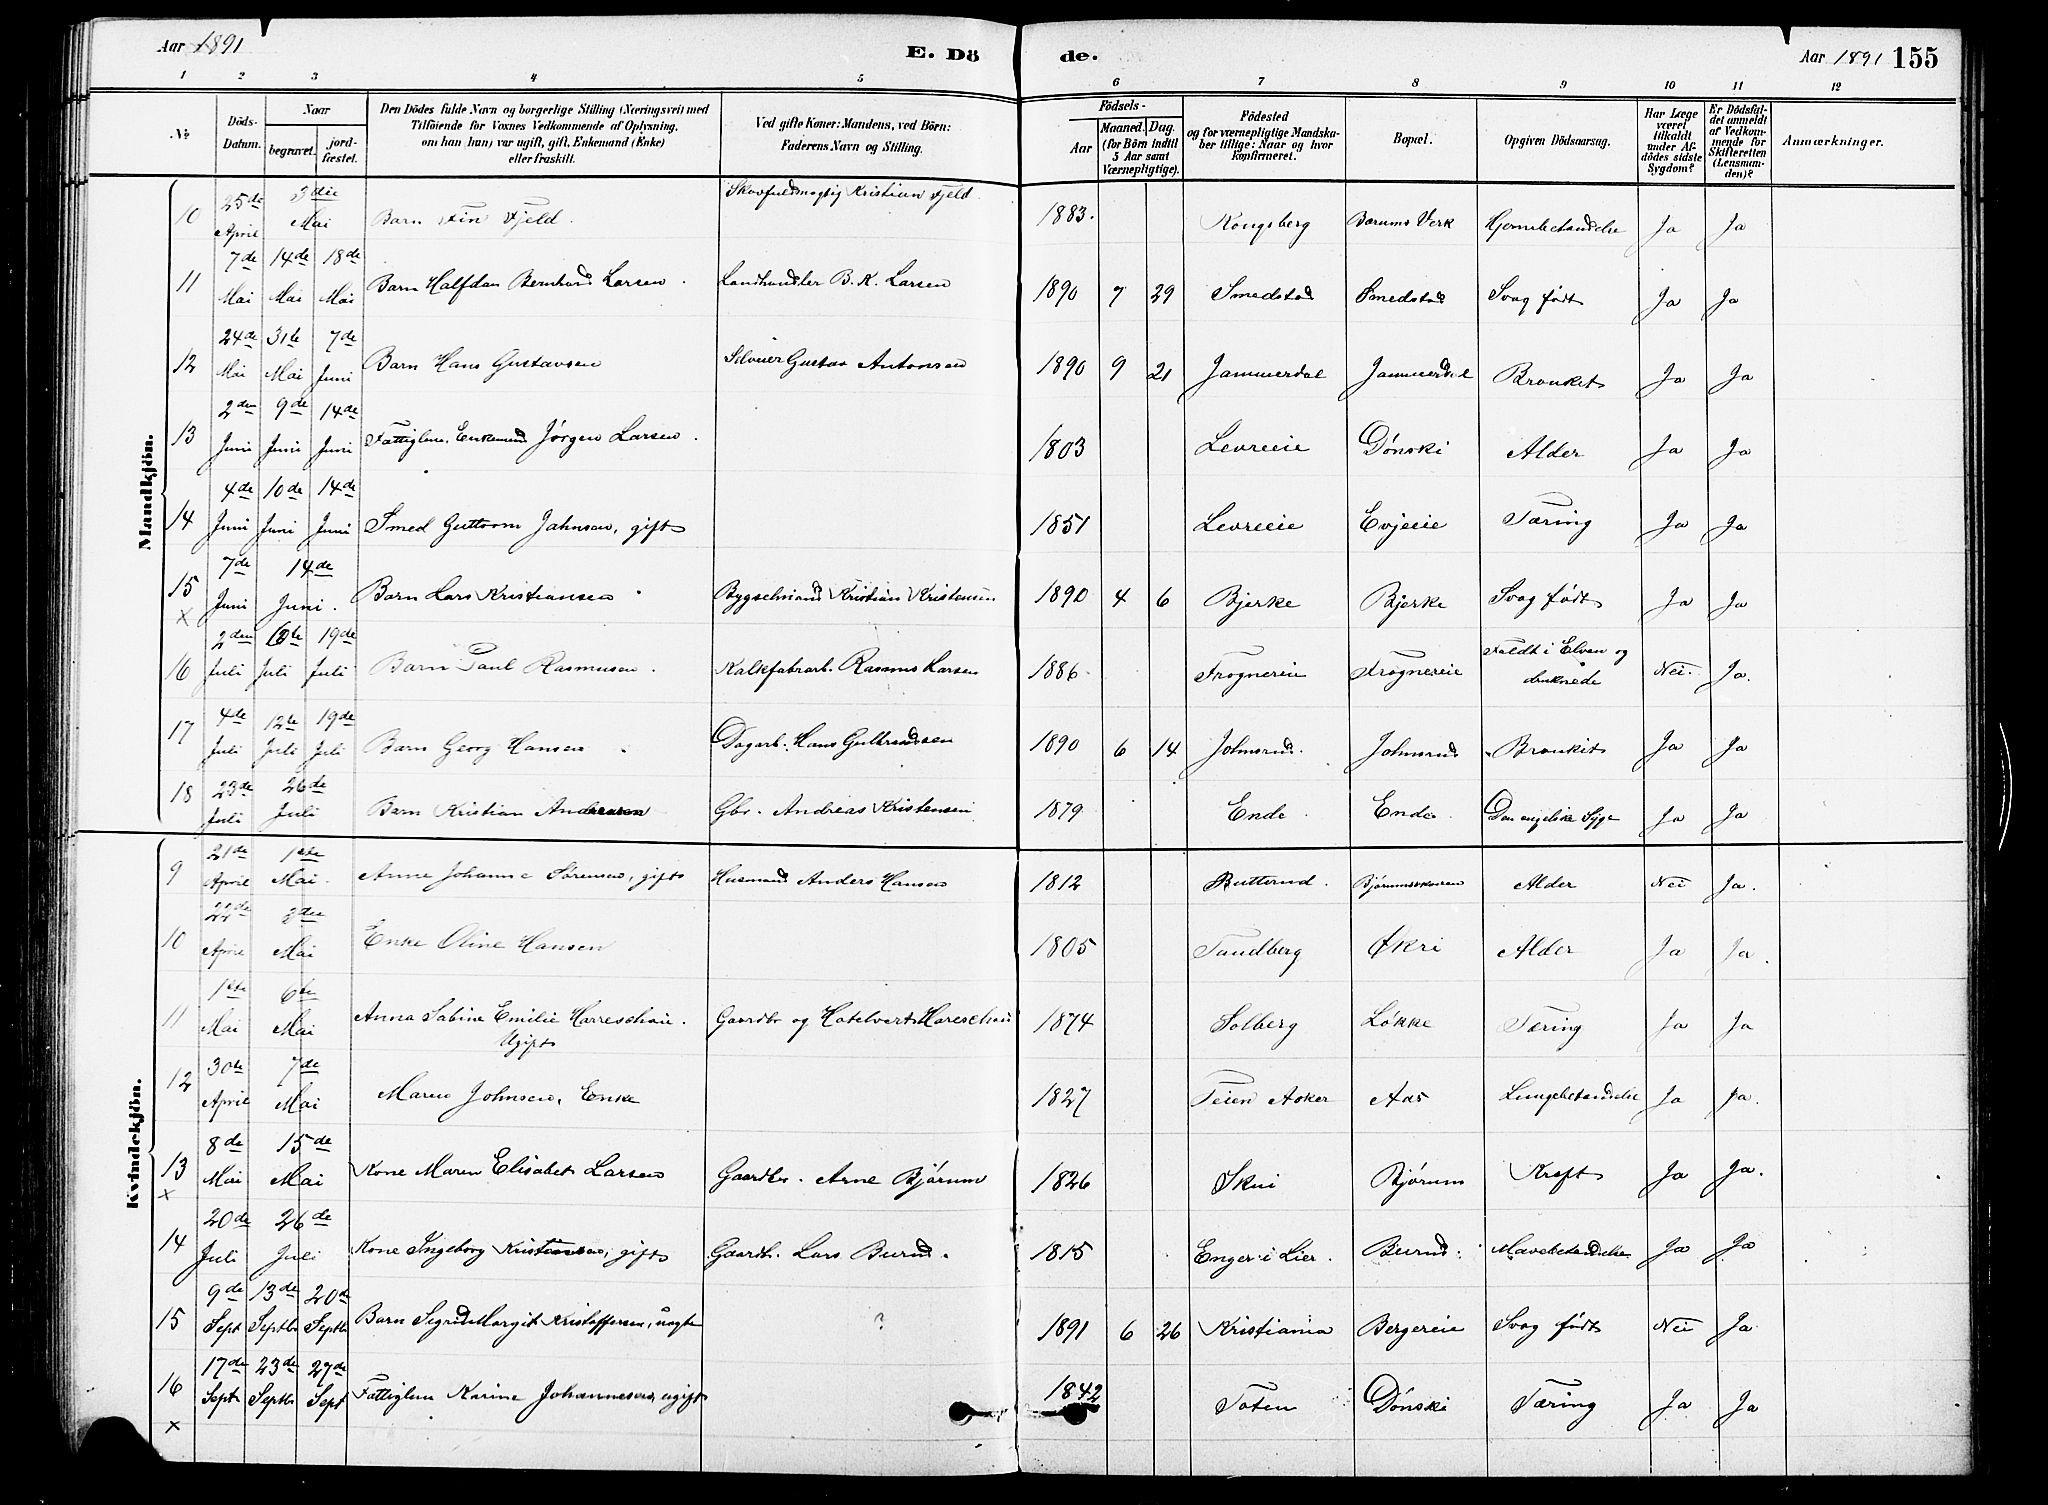 Aar 1891
E. Dö
de.
Aar 1891 155
1 2 3 4 5 6 7 8 9 10 11 12
No
Döds-Datum.
Naar
begravet.
jord-fæstet.
Den Dödes fulde Navn og borgerlige Stilling (Næringsvei) med
Tilföiende for Voxnes Vedkommende af Oplysning,
om han (hun) var ugift, gift, Enkemand (Enke)
eller fraskilt.
Ved gifte Koner: Mandens, ved Börn:
Faderens Navn og Stilling.
Födsels-
Aar
Maaned. Dag.
(for Börn indtil
5 Aar samt
Værnepligtige).
Födested
og for værnepligtige Mandska-
ber tillige: Naar og hvor
konfirmeret.
Bopæl.
Opgiven Dödsaarsag.
Har Læge
været
tilkaldt
under Af-
dödes sidste
Sygdom?
Er Dödsfal-
det anmeldt
af Vedkom-
mende for
Skifteretten
(Lensman-
den)?
Anmærkninger.
Mandkjön.
10 25de April 3die Mai Barn Fin Fjeld. Skovfuldmægtig Kristian Fjeld 1883. Kongsberg Bærums Verk Hjernebetændelse Ja Ja
11 7de Mai 14de Mai 18de Mai Barn Halfdan Bernhard Larsen. Landhandler B. K. Larsen 1890 7 29 Smedstad Smedstad Svag født Ja Ja
12 24de Mai 31te Mai 7de Juni Barn Hans Gustavsen Selveier Gustav Antonsen 1890 9 21 Jammerdal Jammerdal Bronkit Ja Ja
13 2den Juni 9de Juni 14de Juni Fattiglem, Enkemand Jørgen Larsen. 1803 Levreeie Dønski Alder Ja Ja
14 4de Juni 10de Juni 14de Juni Smed Guttorm Jahnsen, gift 1851 Levreeie Evjeeie Tæring Ja Ja
15 x 7de Juni 14de Juni. Barn Lars Kristiansen Bygselmand Kristian Kristensen 1890 4 6 Bjerke Bjerke Svag født Ja Ja
16 2den Juli 6te Juli 19de Juli Barn Paul Rasmusen. Kalkfabrarb. Rasmus Larsen 1886 Frognereie Frognereie Faldt i Elven og druknede Nei. Ja.
17 4de Juli 12te Juli 19de Juli Barn Georg Hansen Dagarb. Hans Gulbrandsen 1890 6 14 Johnsrud. Johnsrud Bronkit Ja Ja
18 23de Juli 26de Juli Barn Kristian Andreasen Gbr. Andreas Kristensen 1879 Ende Ende. Den engelske Syge Ja Ja
Kvindekjön.
9 21de April 1ste Mai. Anne Johanne Sørensen, gift Husmand Anders Hansen 1812 Butterud. Alder Nei Ja.
10 22de April 3die Mai Enke Oline Hansen 1805 Tandberg Økri Alder Ja Ja.
11 1ste Mai 6te Mai Anna Sabine Emilie Harreschou. Ugift Gaardbr og Hotelvert Hareschou 1874 Solberg Løkke Tæring Ja Ja
12 30te April 7de Mai Maren Johnsen, Enke 1827 Teien Aker Aas Lungebetændelse Ja Ja.
13 x 8de Mai 15de Mai Kone Maren Elisabet Larsen Gaardbr. Arne Bjørum 1826 Skui Bjørum Kreft Ja Ja.
14 20de Juli 26de Juli Kone Ingeborg Kristiansen, gift Gaardb. Lars Burud. 1815 Enger i Lier. Burud. Mavebetændelse Ja Ja
15 9de Sept 13de Septbr 20de Septbr Barn Sigrid Margit Kristoffersen, uægte ? 1891 6 26 Kristiania Bergereie Svag født Nei Ja
16 x 17de Sept 23de Septbr 27de Sept Fattiglem Karine Johannesen, ugift 1842 Toten Dønski Tæring Ja Ja